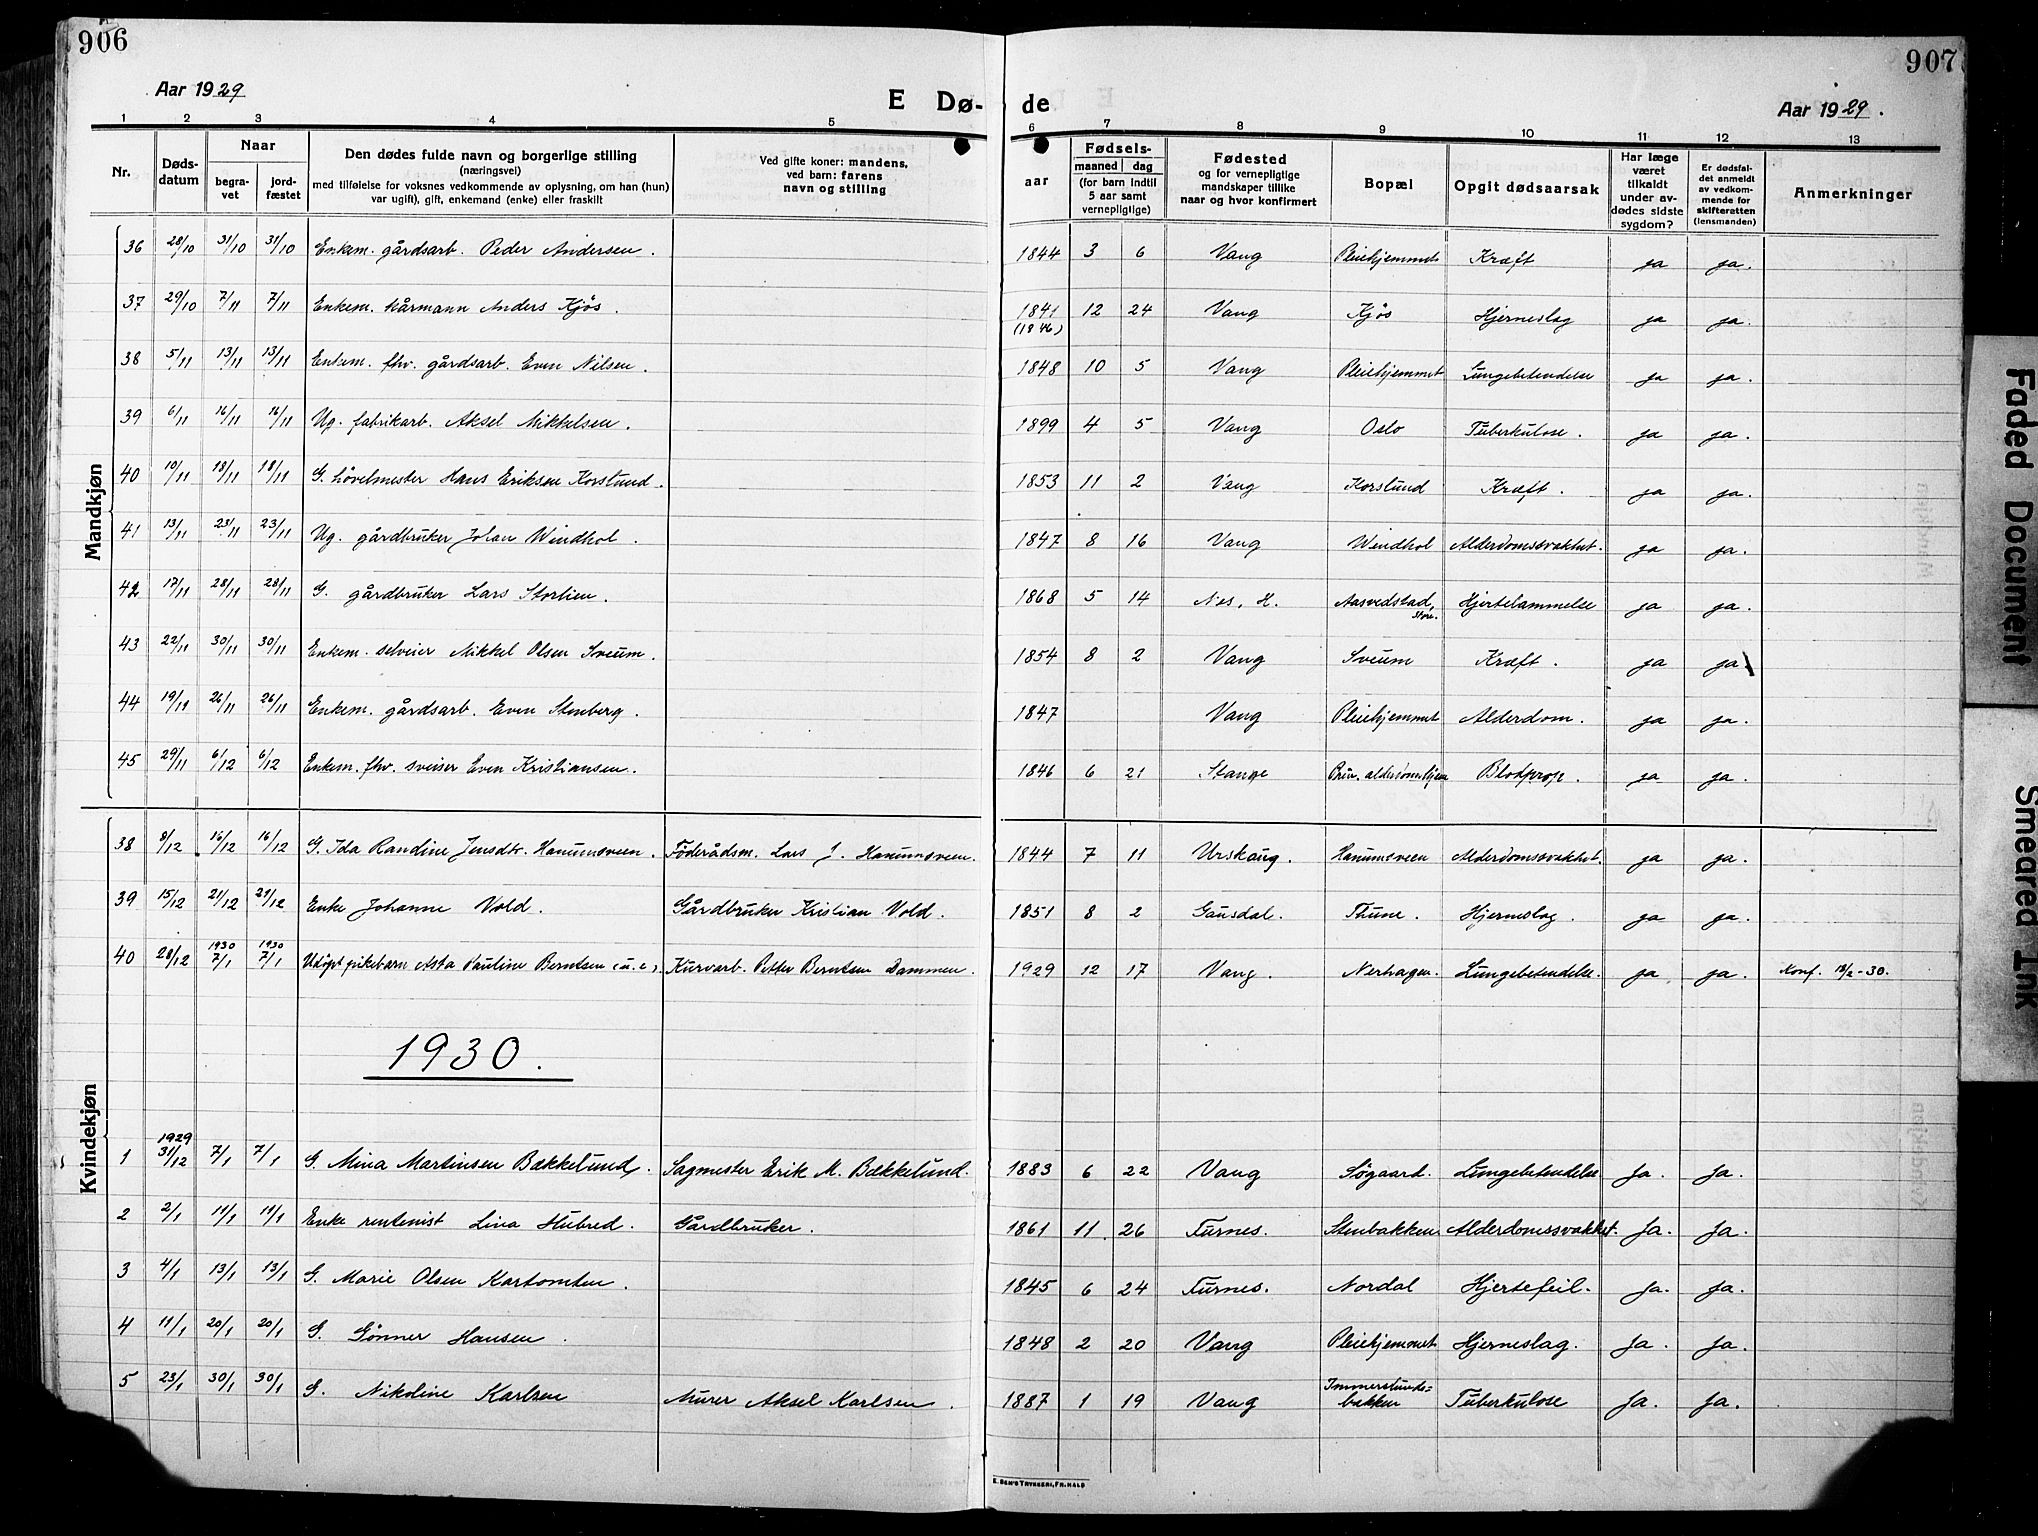 906
907
Aar 1929
E Dø-
de
Aar 1929.
1 2 3 4 5 6 7 8 9 10 11 12 13
Nr. Døds-datum Naar begra-vet jord-fæstet Den dødes fulde navn og borgerlige stilling (næringsvei) med tilføielse for voksnes vedkommende av oplysning, om han (hun) var ugift), gift, enkemand (enke) eller fraskilt Ved gifte koner: mandens, ved barn: farens navn og stilling Fødsels- aar maaned dag (for barn indtil 5 aar samt vernepligtige) Fødested og for vernepligtige mandskaper tillike naar og hvor konfirmert Bopæl Opgit dødsaarsak Har læge været tilkaldt under av-dødes sidste sygdom? Er dødsfal-det anmeldt av vedkom-mende for skifteretten (lensmanden) Anmerkninger
Mandkjøn
36 28/10 31/10 31/10 Enkem. gårdsarb. Peder Andersen. 1844 3 6 Vang Pleiehjemmet Kræft ja ja.
37 29/10 7/11 7/11 Enkem. kårmann Anders Kjøs. 1841 (1846) 12 24 Vang Kjøs Hjerneslag ja ja.
38 5/11 13/11 13/11 Enkem. fhv. gårdsarb. Even Nilsen. 1848 10 5 Vang Pleiehjemmet Lungebetendelse ja ja.
39 6/11 16/11 16/11 Ug. fabrikarb. Aksel Mikkelsen. 1899 4 5 Vang Oslo Tuberkulose. ja ja.
40 10/11 18/11 18/11 G. høvelmester Hans Eriksen Korslund. 1853 11 2 Vang Korslund Kræft. ja ja.
41 13/11 23/11 23/11 Ug. gårdbruker Johan Windhol. 1847 8 16 Vang Windhol Alderdomssvakhet. ja ja.
42 17/11 28/11 28/11 G. gårdbruker Lars Storlien. 1868 5 14 Nes, H. Aasvedstad, store. Hjertelammelse ja ja.
43 22/11 30/11 30/11 Enkem. selveier Mikkel Olsen Sveum. 1854 8 2 Vang Sveum Kræft. ja ja
44 19/11 26/11 26/11 Enkem. gårdsarb. Even Stenberg. 1847 Vang Pleiehjemmet Alderdom. ja ja.
45 29/11 6/12 6/12 Enkem. fhv. sveiser Even Kristiansen. 1846 6 21 Stange Priv. aldersomshjem Blodprop. ja ja.
Kvindekjøn
38 8/12 16/12 16/12 G. Ida Randine Jensdtr. Hanumsveen. Føderådsm. Lars J. Hanumsveen. 1844 7 11 Urskoug. Hanumsveen Alderdomssvakhet. ja ja.
39 15/12 21/12 21/12 Enke Johanne Vold. Gårdbruker Kristian Vold. 1851 8 2 Gausdal. Thune. Hjerneslag. ja ja.
40 28/12 1930 7/1 1930 7/1 Udøpt pikebarn Asta Pauline Berntsen (u.e). Kurvarb. Petter Berntsen Dammen. 1929 12 17 Vang. Nerhagen. Lungebetendelse. ja ja. Konf. 18/2-30.
1930.
1 1929 31/12 7/1 7/1 G. Mina Martinsen Bækkelund. Sagmester Erik M. Bækkelund. 1883 6 22 Vang Søgaard. Lungebetendelse Ja. Ja.
2 2/1 11/1 11/1 Enke rentenist Lina Hubred. Gårdbruker. 1861 11 26 Furnes. Stenbakken Alderdomssvakhet. Ja. Ja.
3 4/1 13/1 13/1 G. Marie Olsen Kartomten. 1845 6 24 Furnes. Nordal Hjertefeil. Ja. Ja.
4 11/1 20/1 20/1 G. Gønner Hansen. 1848 2 20 Vang Pleiehjemmet Hjerneslag. Ja. Ja.
5 23/1 30/1 30/1 G. Nikoline Karlsen Murer Aksel Karlsen. 1887 1 19 Vang Immerslunds=bakken Tuberkulose Ja. Ja.
E. SEM'S TRYKKERI, FR.HALD
Faded Document
Smeared Ink